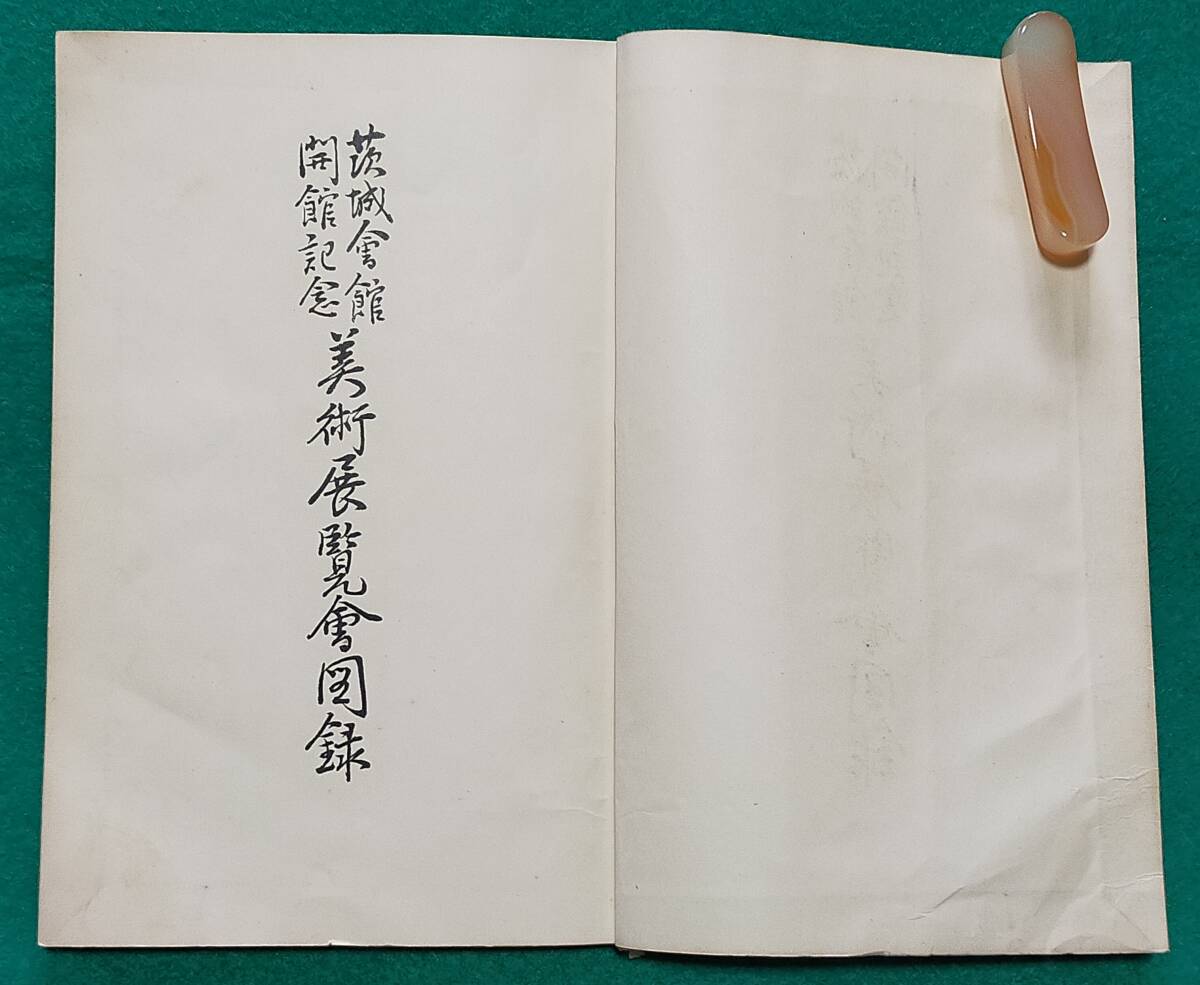 茨城會館
開館記念
美術展覧會図録